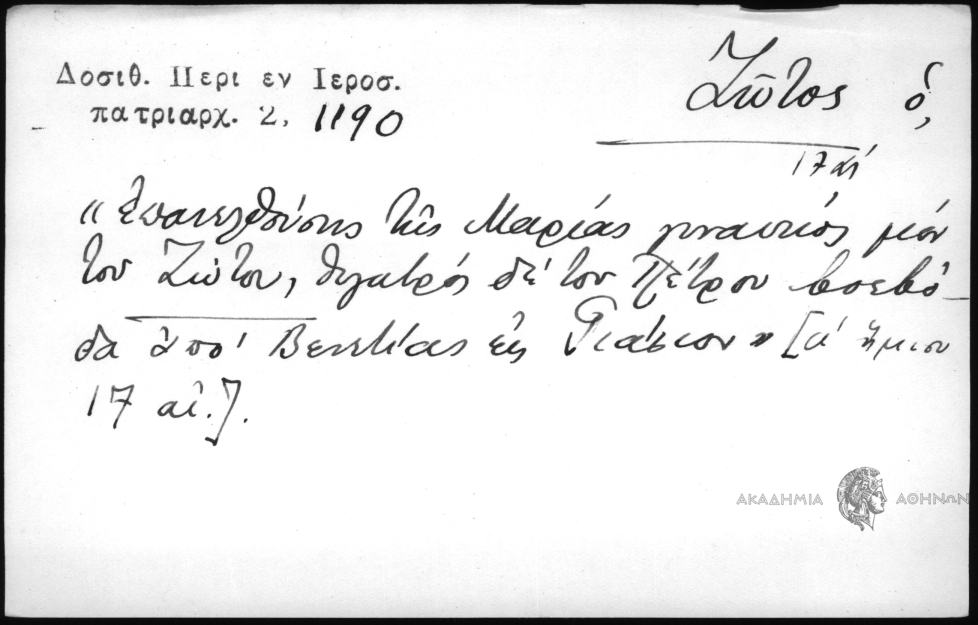 Δοσιθ. Περι εν Ιεροσ.
πατριαρχ. 2, 1190
Ζῶτος ὁ,
17 αἰ
« Ἐπανελθούσης τῆς Μαρίας γυναικός μὲν
του Ζώτου, θυγατρός δέ του Πέτρου βοεβό-
δα ἀπό Βενετίας εἰς Γιάσιον » [α' ἥμισυ
17 αἰ.].
ΑΚΑΔΗΜΙΑ ΑΘΗΝΩΝ